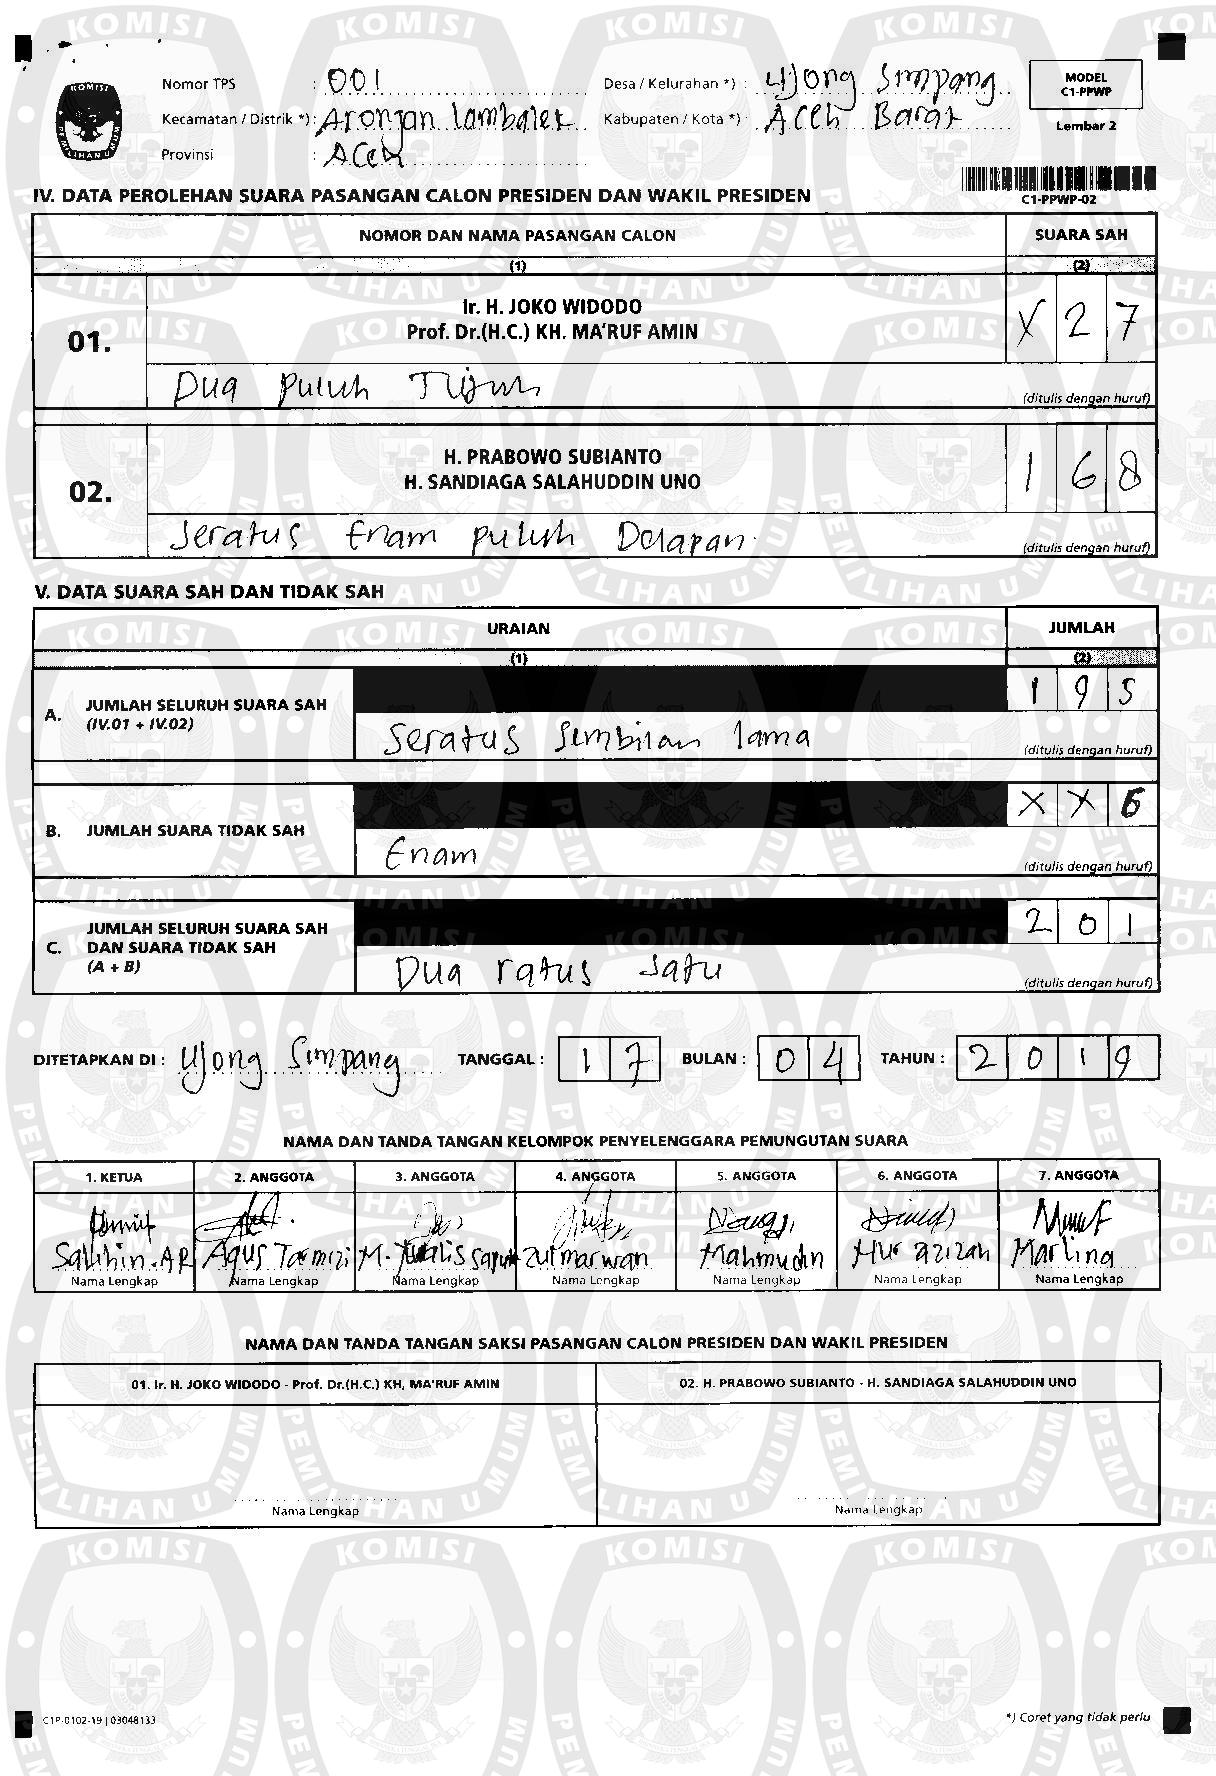 Nomor TPS : 001
Kecamatan / Distrik *) : Arongan Lambalek
Provinsi : Aceh
Desa / Kelurahan *) : Ujong Simpang
Kabupaten / Kota *) : Aceh Barat
MODEL
C1-PPWP
Lembar 2
C1-PPWP-02
IV. DATA PEROLEHAN SUARA PASANGAN CALON PRESIDEN DAN WAKIL PRESIDEN
NOMOR DAN NAMA PASANGAN CALON SUARA SAH
(1) (2)
01. Ir. H. JOKO WIDODO
Prof. Dr.(H.C.) KH. MA'RUF AMIN X 2 7
Dua puluh Tujuh (ditulis dengan huruf)
02. H. PRABOWO SUBIANTO
H. SANDIAGA SALAHUDDIN UNO 1 6 8
Seratus Enam puluh Delapan (ditulis dengan huruf)
V. DATA SUARA SAH DAN TIDAK SAH
URAIAN JUMLAH
(1) (2)
A. JUMLAH SELURUH SUARA SAH
(IV.01 + IV.02) 1 9 5
Seratus Sembilan lama (ditulis dengan huruf)
B. JUMLAH SUARA TIDAK SAH X X 6
Enam (ditulis dengan huruf)
C. JUMLAH SELURUH SUARA SAH
DAN SUARA TIDAK SAH
(A + B) 2 0 1
Dua ratus satu (ditulis dengan huruf)
DITETAPKAN DI : Ujong Simpang TANGGAL : 1 7 BULAN : 0 4 TAHUN : 2 0 1 9
NAMA DAN TANDA TANGAN KELOMPOK PENYELENGGARA PEMUNGUTAN SUARA
1. KETUA 2. ANGGOTA 3. ANGGOTA 4. ANGGOTA 5. ANGGOTA 6. ANGGOTA 7. ANGGOTA
Salihin.AR Agus Tarmizi M. Zulmarwan Mahmudin Nur azizah Marlina
Nama Lengkap Nama Lengkap Nama Lengkap Nama Lengkap Nama Lengkap Nama Lengkap Nama Lengkap
NAMA DAN TANDA TANGAN SAKSI PASANGAN CALON PRESIDEN DAN WAKIL PRESIDEN
01. Ir. H. JOKO WIDODO - Prof. Dr.(H.C.) KH, MA'RUF AMIN 02. H. PRABOWO SUBIANTO - H. SANDIAGA SALAHUDDIN UNO
Nama Lengkap Nama Lengkap
C1P-0102-19 | 03048133 *) Coret yang tidak perlu